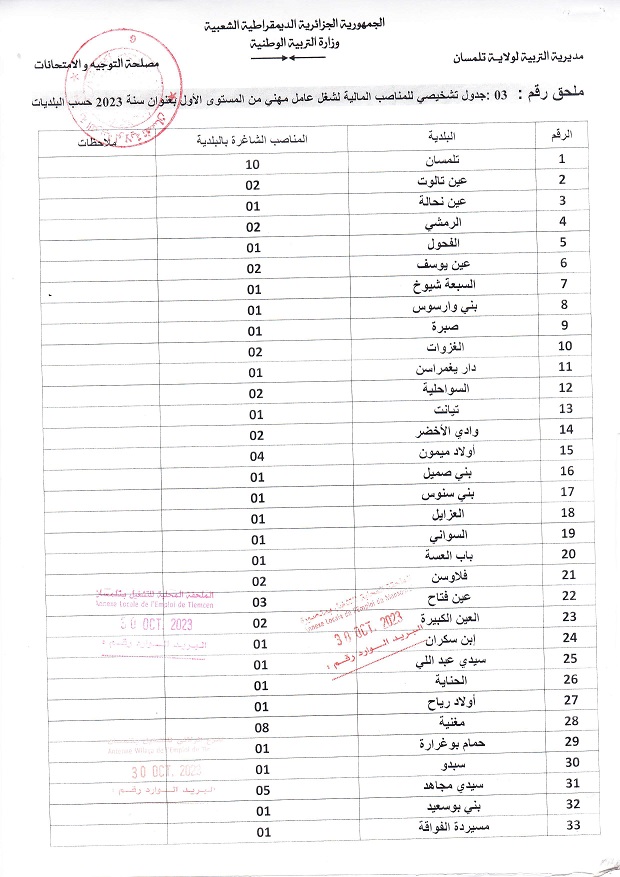 الجمهورية الجزائرية الديمقراطية الشعبية
وزارة التربية الوطنية
مديرية التربية لولاية تلمسان
مصلحة التوجيه والامتحانات
ملحق رقم : 03 :جدول تشخيصي للمناصب المالية لشغل عامل مهني من المستوى الأول بعنوان سنة 2023 حسب البلديات
الرقم البلدية المناصب الشاغرة بالبلدية ملاحظات
1 تلمسان 10
2 عين تالوت 02
3 عين نحالة 01
4 الرمشي 02
5 الفحول 01
6 عين يوسف 02
7 السبعة شيوخ 01
8 بني وارسوس 01
9 صبرة 01
10 الغزوات 02
11 دار يغمراسن 01
12 السواحلية 02
13 تيانت 01
14 وادي الأخضر 02
15 أولاد ميمون 04
16 بني صميل 01
17 بني سنوس 01
18 العزايل 01
19 السواني 01
20 باب العسة 01
21 فلاوسن 02
22 عين فتاح 03
23 العين الكبيرة 02
24 إبن سكران 01
25 سيدي عبد اللي 01
26 الحناية 01
27 أولاد رياح 01
28 مغنية 08
29 حمام بوغرارة 01
30 سبدو 01
31 سيدي مجاهد 05
32 بني بوسعيد 01
33 مسيردة الفواقة 01
الملحقة المحلية للتشغيل بتلمسان
Annexe Locale de l'Emploi de Tlemcen
30 OCT. 2023
البريد الوارد رقم :
الملحقة المحلية للتشغيل بتلمسان
Annexe Locale de l'Emploi de Tlemcen
30 OCT. 2023
البريد الوارد رقم :
30 OCT. 2023
البريد الوارد رقم :